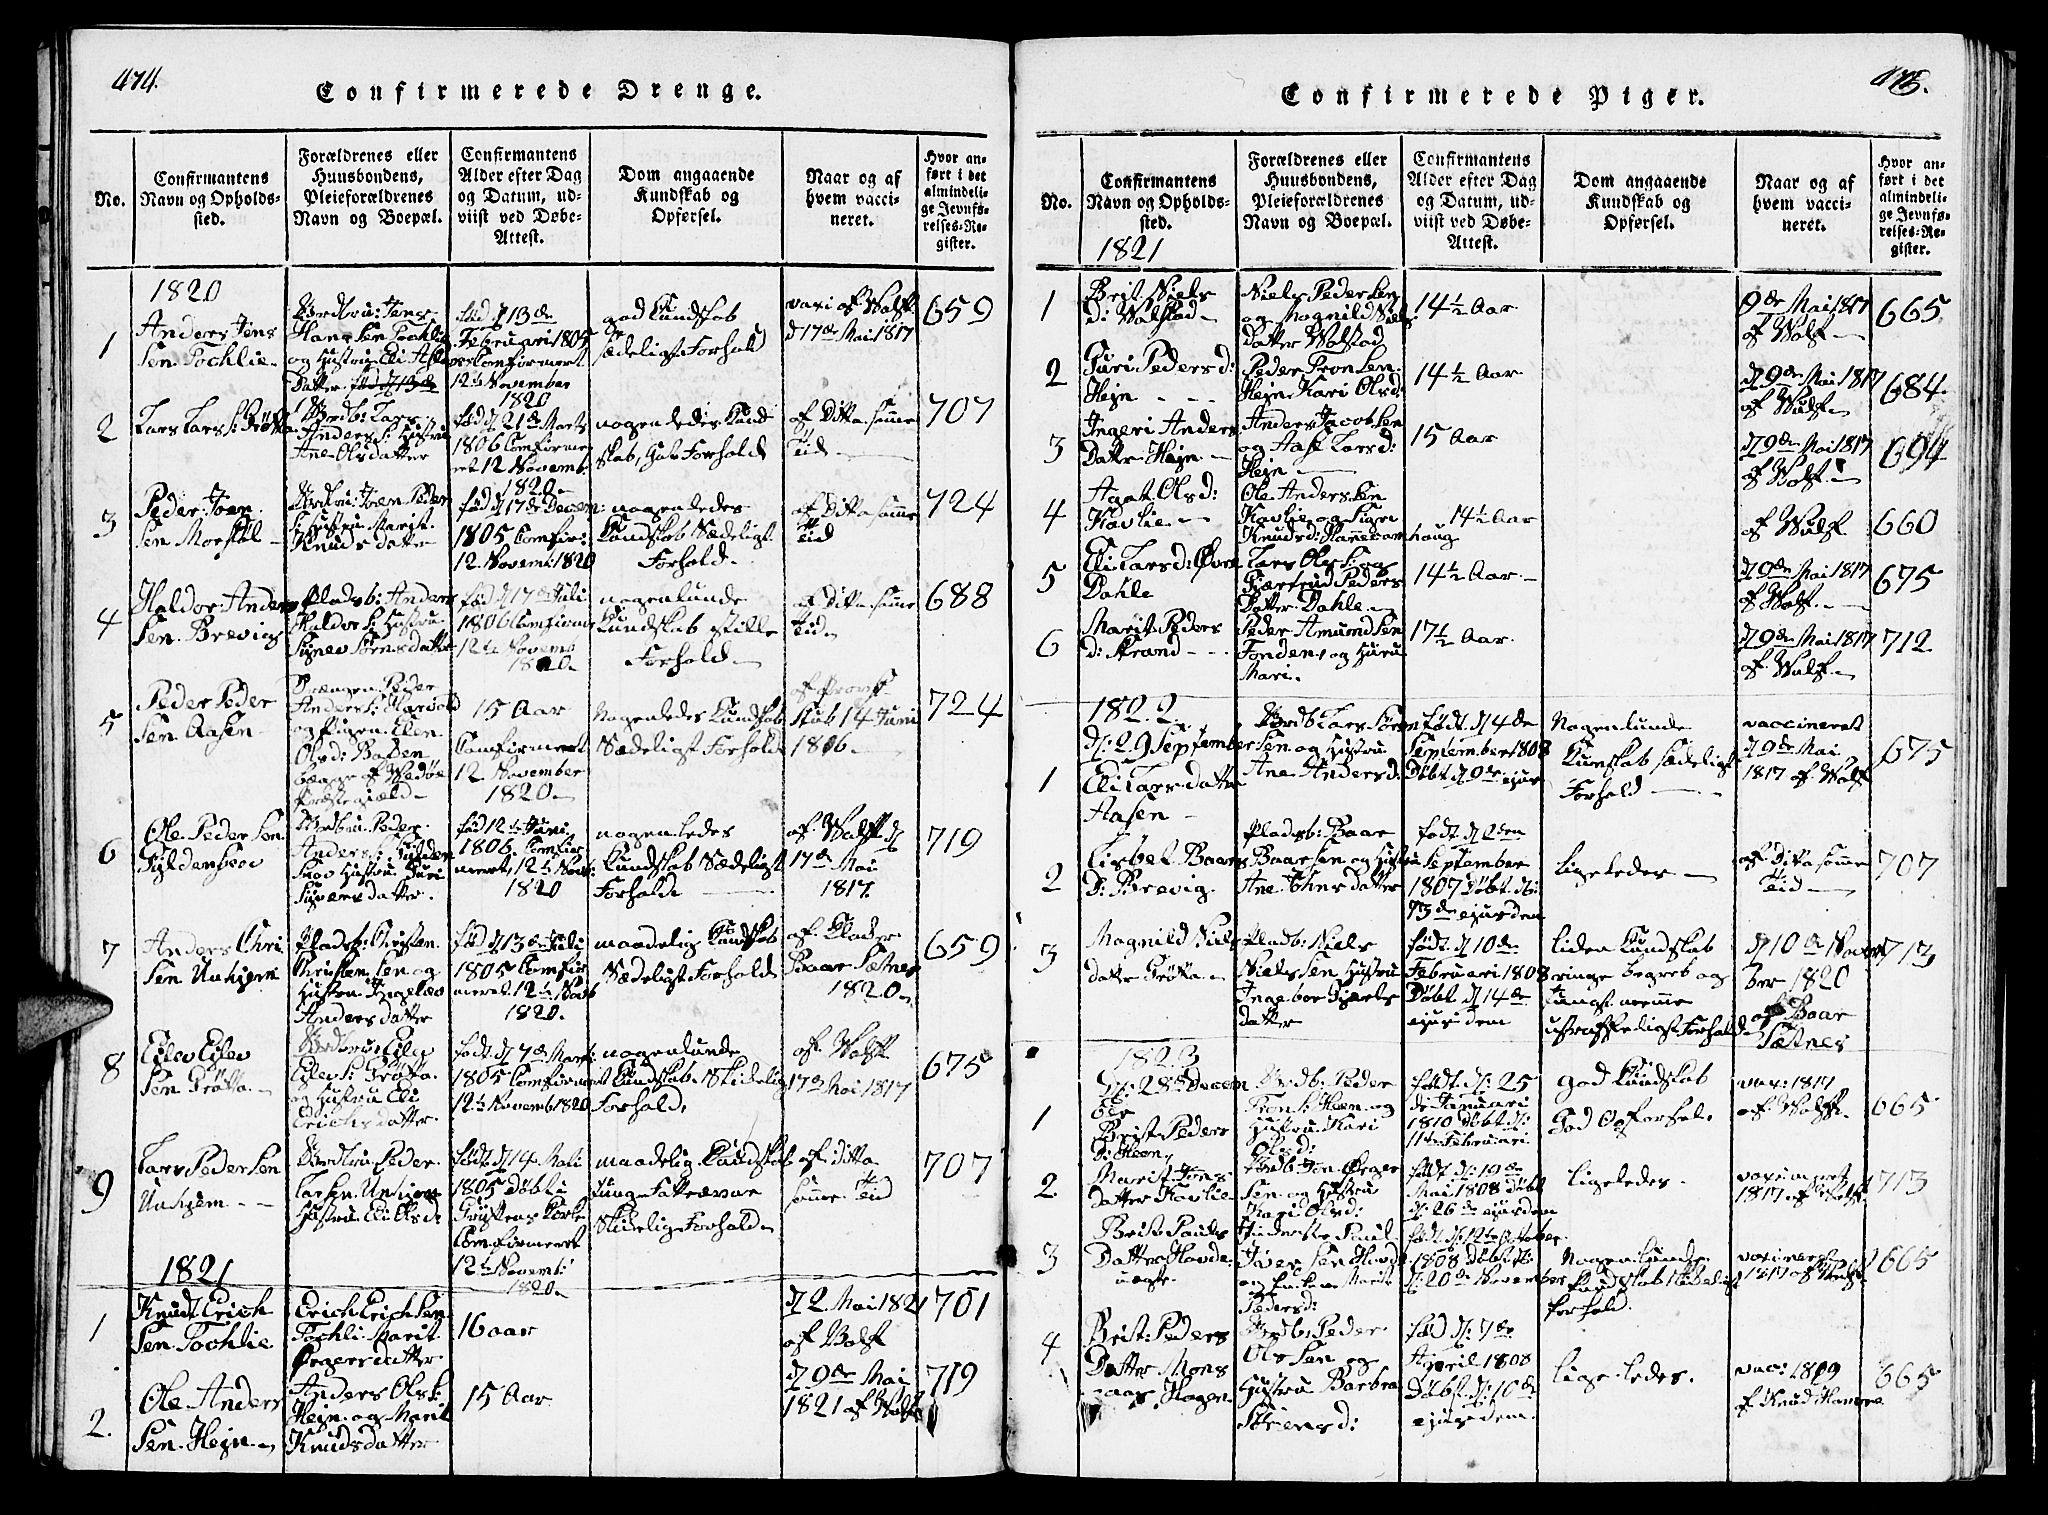 474.
Confirmerede Drenge.
No.
Confirmantens
Navn og Opholds-
sted.
Forældrenes eller
Huusbondens,
Pleieforældrenes
Navn og Boepæl.
Confirmantens
Alder efter Dag
og Datum, ud-
viist ved Døbe-
Attest.
Dom angaaende
Kundskab og
Opførsel.
Naar og af
hvem vacci-
neret.
Hvor an-
ført i det
almindeli-
ge Jevnfø-
relses-Re-
gister.
1820
1
Anders Jens
Sen Tochlie
Hans Sen Tochlie
og Hustru Eli
Datter
fød d 13de
Februari 1805
Comfirmert
12te November
1820
god Kundskab
sædeligt Forhold
d 17de Mai 1817
659
2
Lars Lars S: Grøtta
Lars
Anders S: Hustru
Ane Olsdatter
fød d 21de Marts
1806 Comfirme
ret 12 Novemb
1820
nogenledes Kund
skab, Got Forhold
af Ditto samme
Tid
707
3
Peder Joen
Sen Morstøl
Joen Peder
S: Hustru Marit
Knudsdatter
fød d 17de Decem:
1805 Comfir:
12 Novem: 1820
nogenledes
Kundskab Sædeligt
Forhold
af Ditto samme
Tid
724
4
Haldor Anders
Sen Brevig
Pladsb: Anders
Haldor S: Hustru
Signev Sørensdatter
fød d 17de Juli
1806 Comfirme
12te Novemb
1820
nogenlunde
Kundskab stille
Forhold
af Ditto samme
Tid
688
5
Peder Peder
Sen Aasen
Drængen Peder
Anders S:
og Pigen Elen
Olsd: Boden
begge af Wedøe
Præstegield
15 Aar
Comfirmert
12 November
1820
Nogenledes Kundskab
Sædeligt Forhold
af Provst
Stub 14 Juni
1806
724
6
Ole Peder Sen
Gyldenskov
Peder
Anders S: Gylden
skov Hustru Guri
Siversdatter
fød 12te Juni
1806 Comfir
meret 12te Novb:
1820
nogenledes
Kundskab Sædeligt
Forhold
af Wolff d
17de Mai
1817
719
7
Anders Chri
Sen Unhjem
Pladsb: Christen
Christen Sen og
Hustru Ingeløv
Andersdatter
fød d 13de Juli
1805 Comfir
meret 12te Novb
1820
maadelig Kundskab
Sædeligt Forhold
af Klocker
Baar Sætnes
1820
659
8
Eilev Eilev
Sen Grøtta
Eilev
Eilev S: Grøtta
og Hustru Eli
Erichsdatter
født d 7de Mart:
1805 Comfirmeret
12te Novemb 1820
nogenlunde
Kundskab Skikelig
Forhold
af Wolff
17de Mai 1817
675
9
Lars Peder Sen
Unhjem
Peder
Larsen Unhjem
Hustru Eli Olsd:
født d 14 Mai
1805 Døbt i
Grytens Kirke
Comfirmeret
12te Novemb:
1820
maadelig Kundskab
tung Fatteævne
Skikelig Forhold
af ditto
samme Tid
707
1821
1
Knudt Erich
Sen Tochlie
Erich Erich Sen
Tochli Marit
Ørgersdatter
16 aar
d 2 Mai 1821
af Wolff
701
2.
Ole Anders
Sen Hejn
Anders Ols S:
Hejn og Marit
Knudsdatter
15 Aar
d 9de Mai
1821 af Wolff
719
475.
Confirmerede Piger.
No.
Confirmantens
Navn og Opholds-
sted.
Forældrenes eller
Huusbondens,
Pleieforældrenes
Navn og Boepæl.
Confirmantens
Alder efter Dag
og Datum, ud-
viist ved Døbe-
Attest.
Dom angaaende
Kundskab og
Opførsel.
Naar og af
hvem vacci-
neret.
Hvor an-
ført i det
almindeli-
ge Jevnfø-
relses-Re-
gister.
1821
1
Brit Niels
d: Wolstad
Niels Peder Sen
og Magnild Niels
Datter Wolstad
14½ Aar
9de Mai 1817
af Wolf
665
2
Guri Pedersd:
Hejn
Peder Tron Sen
Hejn Kari Olsd:
14½ Aar
d 9de Mai 1817
af Wulf
684
3
Ingeri Anders
Datter Hejn
Anders Jacob Sen
og Aase Larsd:
Hejn
15 Aar
d 9de Mai 1817
af Wolf
694
4
Agat Olsd:
Kavlie
Ole Anders Sen
Kavlie og Signe
Knudsd:
14½ Aar
af Wulf
660
5
Eli Larsd: Øvre
Dahle
Lars Ols S: og
Gjertrud Peders
Datter Dahle
14½ Aar
d 9de Mai 1817
af Wolf
675
6
Marit Peders
d: Strand
Peder Amund Sen
og Hustru
Mari
17½ Aar
d 9de Mai 1817
af Wulf
712
1822
d: 29 September
1
Eli Larsdatter
Aasen
Lars Søren
Sen og Hustru
Ane Andersd:
født d 4de
September 1808
Døbt d 9de ejus
Nogenlunde
Kundskab sædeligt
Forhold
vaccineret
d 9de Mai
1817 af Wolf
675
2
Lisbet Baars
D: Brevig
Pladsb: Baar
Baarsen og Hustru
Ane Johnsdatter
født d 2den
September
1807 Døbt d:
13de ejusdem
ligeledes
af Ditto samme
Tid
707
3
Magnild Niels
datter Grøtta
Pladsb: Niels
Nielssen Hustru
Ingebor
datter
født d 10de
Februari 1808
Døbt d 14de
ejusdem
liden Kundskab
ringe begreb og
tungt nemme
ustraffeligt Forhold
d 10de Novem
ber 1820
af Baar
Sætnes
713
1823
d: 28de Decem
ber
1
Brit Peders
D: Heen
Peder
Tron S: Heen og
Hustru Kari
Olsd:
født d: 25
de Januari
1810 Døbt d:
11te Februari
god Kundskab
God Opførsel.
vax: 1817
af Wolff
665
2
Marit Jons
datter Kavlie
Jon Ørger
Sen og Hustru
Kari Olsd:
født d: 19de
Mai 1808 Døbt
d: 26de ejusdem
ligeledes
1817 af Wolff
713
3
Brit Pouls
Datter
Poul
Iver Sen
Marit
Pedersd:
født d: 12te October
1808 Døbt
d: 20de November
Nogenlunde
Kundskab skikelig
forhold.
1817 af Wolff
665
4
Brit Peders
Datter Mons
aas Hagen
Peder
Ols Sen og
Hustru Barbra
Sørensd:
fød d: 7de
April 1808
Døbt d: 10de
ejusdem.
ligeledes.
vac: 1809
af Knud Hamre
665